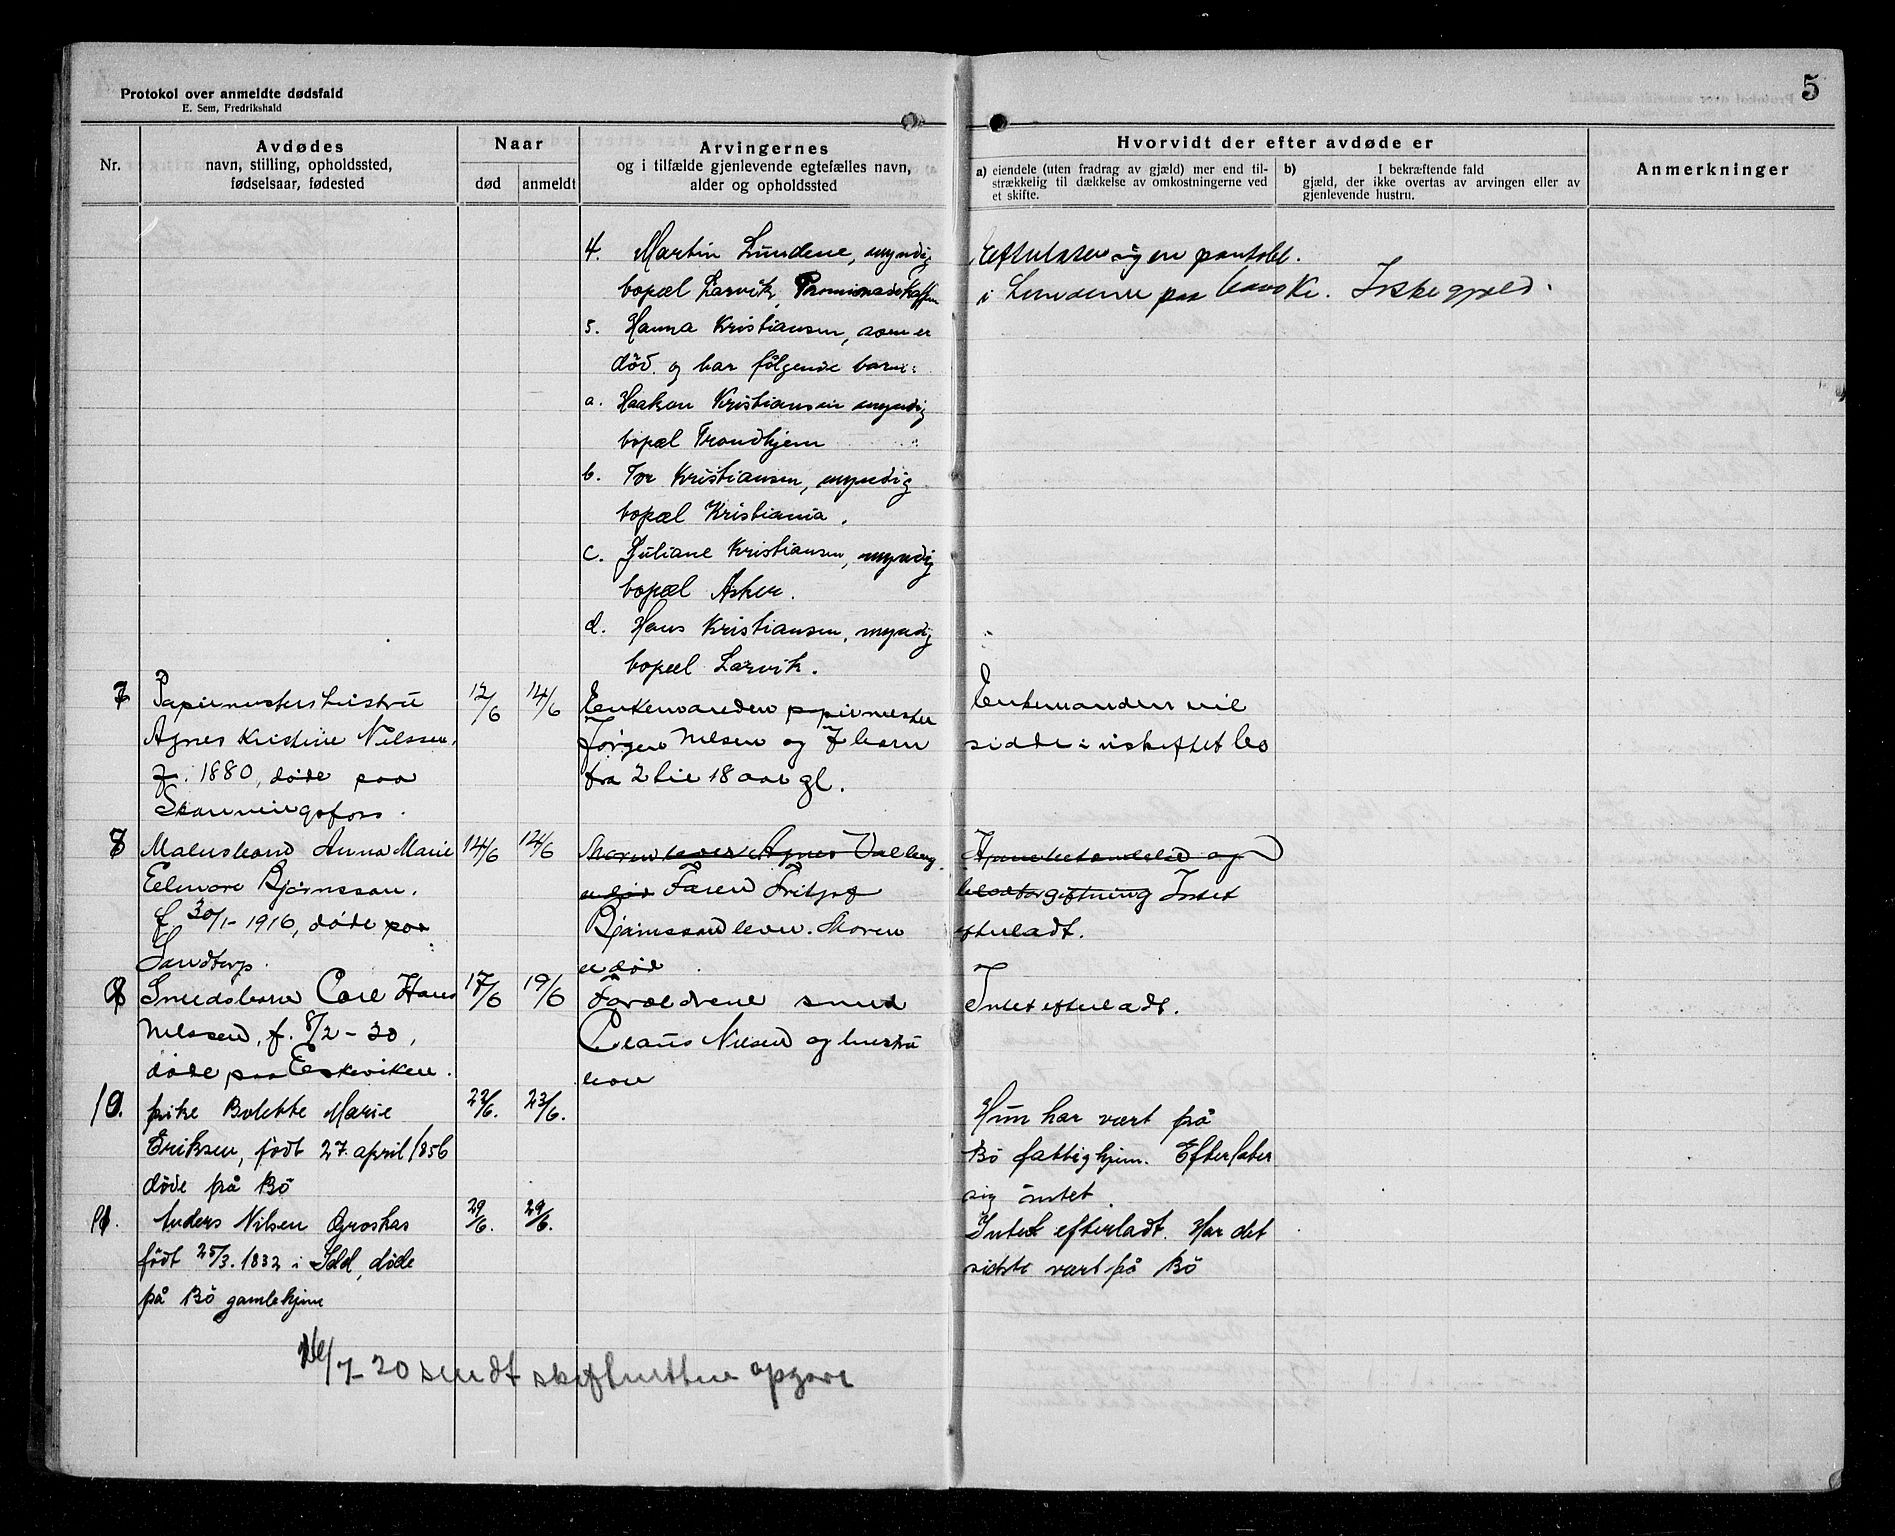 5
Protokol over anmeldte dødsfald
E. Sem, Fredrikshald
Nr.
Avdødes
navn, stilling, opholdssted,
fødselsaar, fødested
Naar
død
anmeldt
Arvingernes
og i tilfælde gjenlevende egtefælles navn,
alder og opholdssted
Hvorvidt der efter avdøde er
a) eiendele (uten fradrag av gjæld) mer end til-
strækkelig til dækkelse av omkostningerne ved
et skifte.
b) I bekræftende fald
gjæld, der ikke overtas av arvingen eller av
gjenlevende hustru.
Anmerkninger
4. Martin Lundene, myndig
bopæl Larvik,
5. Hanna Kristiansen, som er
død og har følgende barn:
a. Haakon Kristiansen myndig
bopæl Trondhjem
b. Tor Kristiansen, myndig
bopæl Kristiania.
c. Juliane Kristiansen, myndig
bopæl Asker.
d. Hans Kristiansen, myndig
bopæl Larvik.
Efterlater sig en
i Lundene paa Ikke gjæld.
7
Papirmesters hustru
Agnes Kristine Nilssen.
f. 1880, døde paa
Skonningsfoss.
12/6
14/6
Enkemanden papirmester
Jørgen Nilsen og 7 barn
fra 2 til 18 aar gl.
Enkemanden vil
sidde i uskiftet bo
8
Malersbarn Anna Marie
Elenore Bjørnsson.
f 30/1-1916, døde paa
Sandtorp.
14/6
14/6
Moren lever Agnes Valberg
er død Faren Fritjof
Bjørnsson lever. Moren
er død
og
blodforgiftning Intet
efterladt.
9
Smedsbarn Carl Hans
Nilssen, f. 8/2-20,
døde paa Eskeviken.
17/6
19/6
Forældrene smed
Claus Nilsen og hustru
lever
Intet efterladt.
10.
pike Bolette Marie
Eriksen, født 27. april 1856
døde på Bö
22/6.
23/6.
Hun har vært på
Bö fattighjem. Efterlater
sig intet.
11.
Anders Nilsen Groskas
født 25/3. 1832 i Idd, døde
på Bö gamlehjem
29/6.
29/6.
Intet efterladt. Har det
sidste vært på Bö
/7-20 sendt skifteretten opgave